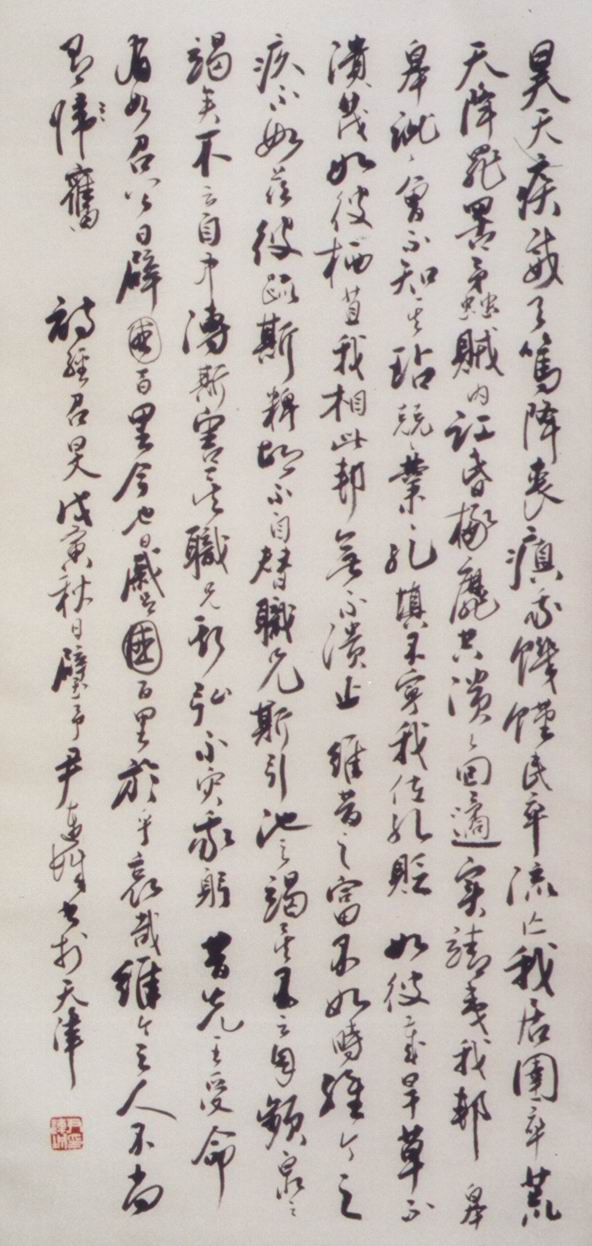 旻天疾威天篤降喪瘨我饑饉民卒流亡我居圉卒荒
天降罪罟蟊賊内訌昏椓靡共潰潰回遹實靖夷我邦 皋
皋訿訿曾不知其玷兢兢業業孔填不寧我位孔貶 如彼歲旱草不
潰茂如彼棲苴我相此邦無不潰止 維昔之富不如時維今之
疚不如茲彼疏斯粺胡不自替職兄斯引池之竭矣不云自頻泉之
竭矣不云自中溥斯害矣職兄斯弘不烖我躬 昔先王受命
有如召公日辟國百里今也日蹙國百里於乎哀哉維今之人不尚
有舊
詩經召旻 戊寅秋日 尹連城書於天津